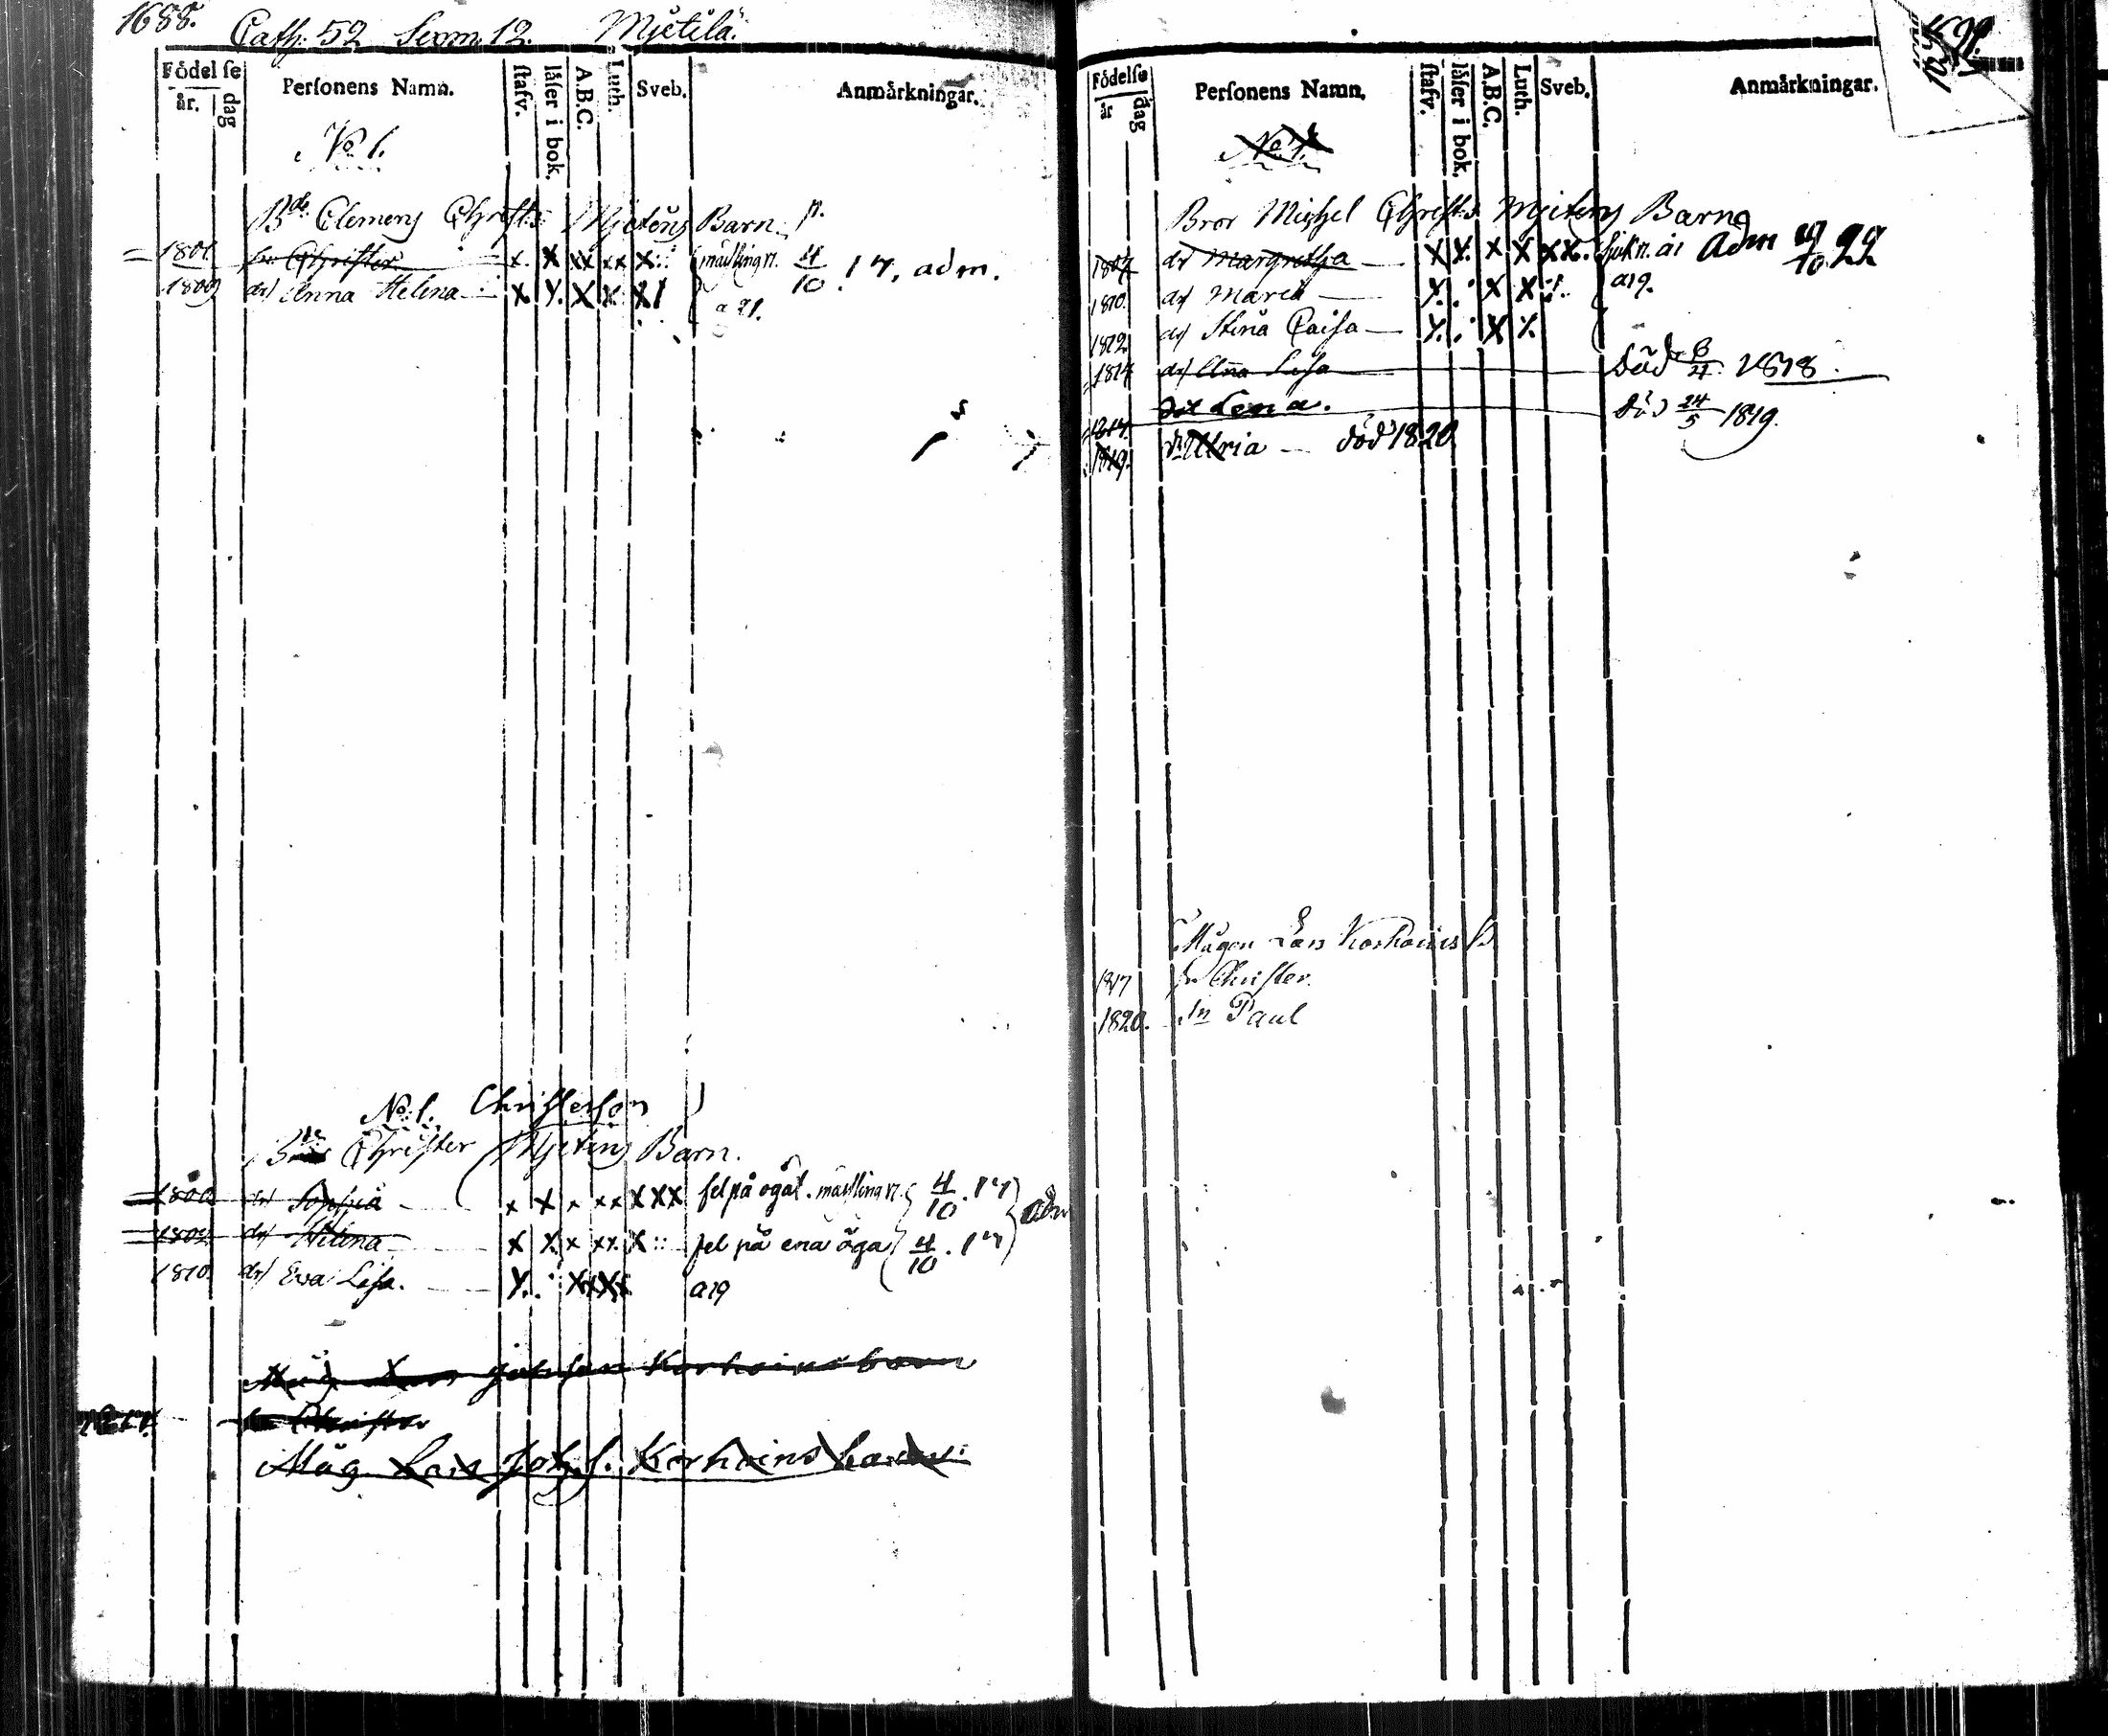 1688. Cath. 52 Sexm. 12. Mjetilä.
Födelſe
år. dag Perſonens Namn. ſtafv. låſer i bok. A.B.C. Luth. Sveb. Anmårkningar.
No 1.
Bde Clemens Christ:s Mjetens Barn
1801. sn Christer x. x xx xx x:: 4/10 17, adm.
1809 dr Anna Helina x x. x x. x1 a 21.
No. 1. Christerson
Christer Mjetins Barn.
1800 dr Sophia x x x xx xxx fel på ögat. 4/10. 17 adm
1802 dr Helena x x. x xx. x:: fel på ena öga 4/10. 17
1810. dr Eva Lisa. a19
Måg Lars Johnson Korhoins barn
sn Christer
Måg Lars Joh. s. Korhoins barn
Födelſe
år dag Perſonens Namn. ſtafv. låſer i bok. A.B.C. Luth. Sveb. Anmårkningar.
No. 1.
Bror Michel Christ:s Mjetens Barn
1807 dr Margretha x x. x x xx. Adm
1810. dr Maria a19.
1812 dr Stina Caisa
1814 dr Anna Lisa död 1818.
1817. dr Lena. död 24/5 1819.
1819. död 1820
Mågen Lars Korhoins B
1817 sn Christer.
1820. sn Paul